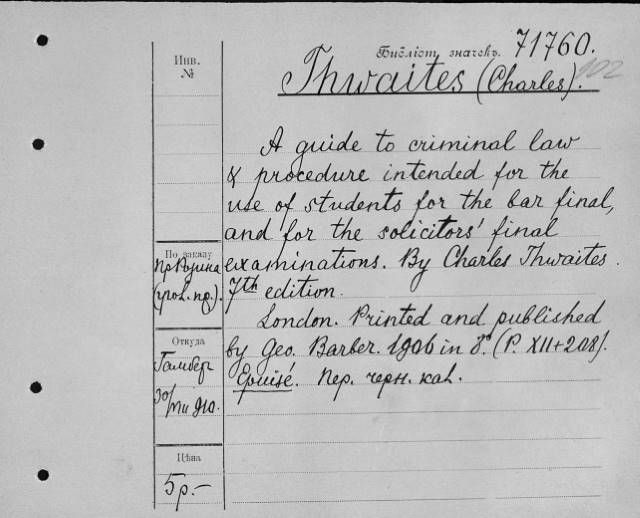 Библіот. значекъ. 71760.
102
Thwaites (Charles).
Инв.
№
A guide to criminal law
& procedure intended for the
use of students for the bar final,
and for the solicitors' final
examinations. By Charles Thwaites.
7th edition.
London. Printed and published
by Geo. Barber. 1906 in 8º. (P. XII+208).
Épuisé. Пер. черн. кал.
По заказу
Откуда
Цѣна
5 р.-